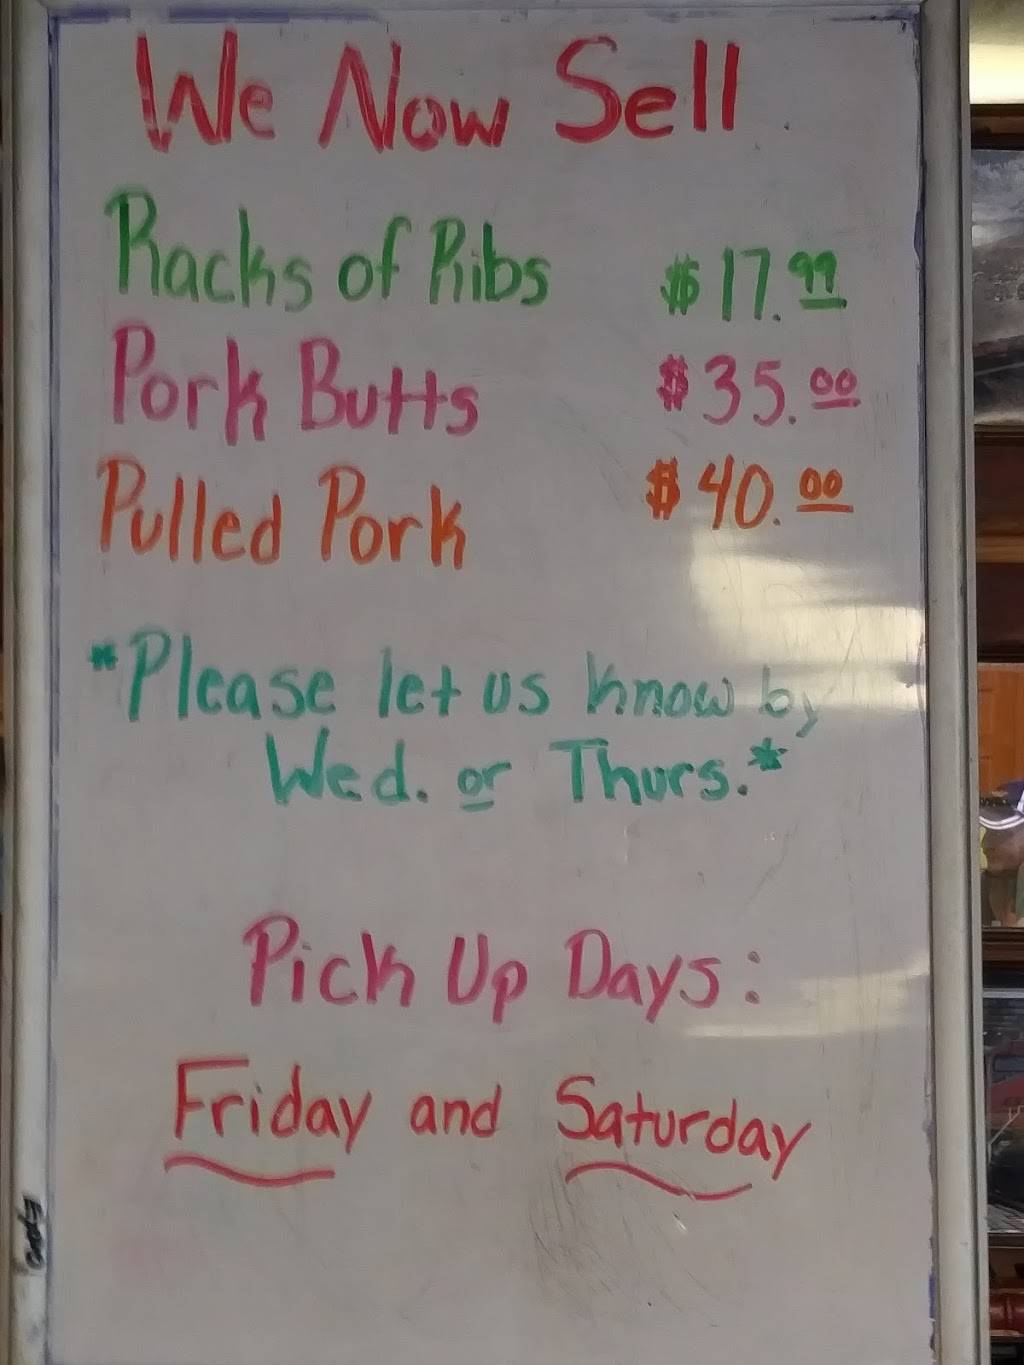 We Now Sell
Racks of Ribs $17.99
Pork Butts $35.00
Pulled Pork $40.00
*Please let us know by
Wed. or Thurs.*
Pick Up Days:
Friday and Saturday
Expo